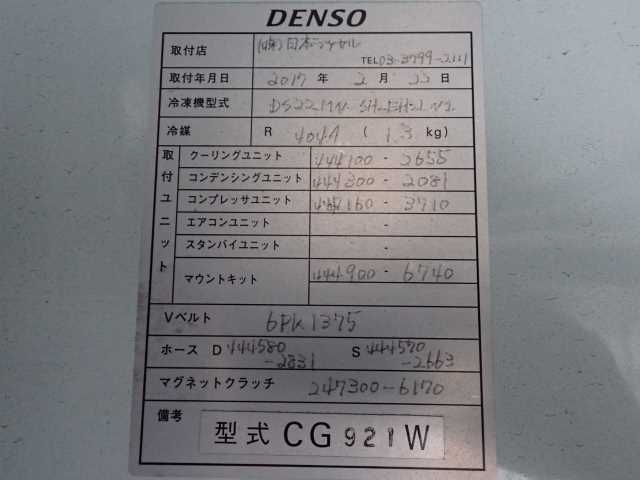 DENSO
取付店 (株)日本フルハル
TEL 03-3799-2111
取付年月日 2017年 2月 22日
冷凍機型式
冷媒 R 404A ( 1.3 kg)
取付ユニット
クーリングユニット 444100 - 2655
コンデンシングユニット 444300 - 2081
コンプレッサユニット 447160 - 3710
エアコンユニット -
スタンバイユニット -
マウントキット 444900 - 6740
Vベルト 6PK1375
ホース D 444580 -2831 S 444570 -2663
マグネットクラッチ 247300-6170
備考 型式 CG921W